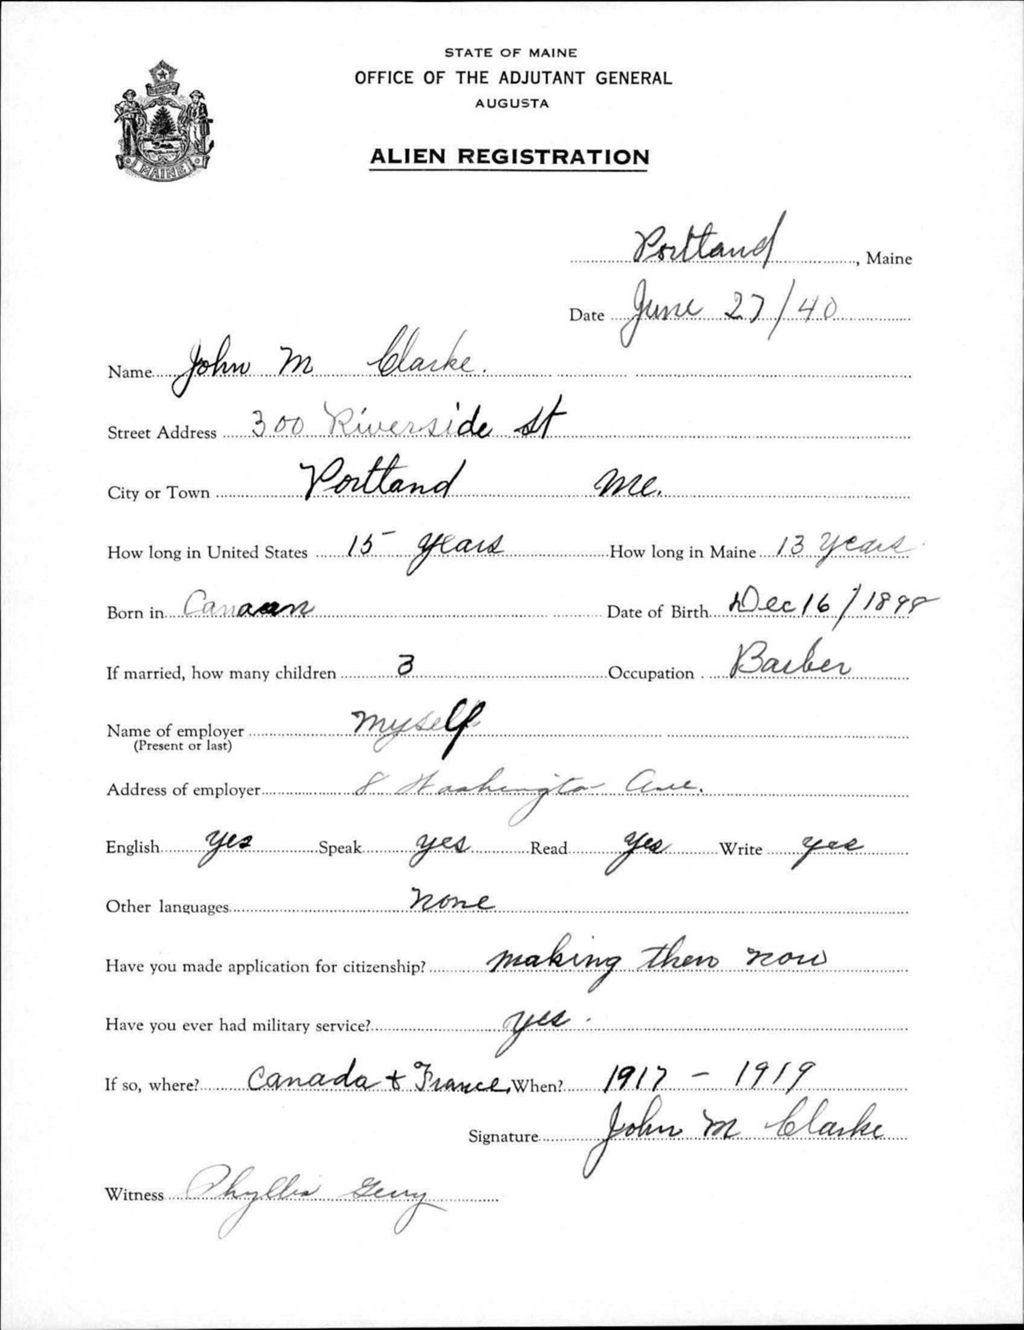 STATE OF MAINE
OFFICE OF THE ADJUTANT GENERAL
AUGUSTA
MAINE
ALIEN REGISTRATION
Portland, Maine
Date June 27/40
Name John M Clarke.
Street Address 300 Riverside St
City or Town Portland Me.
How long in United States 15 years How long in Maine 13 years
Born in Date of Birth Dec 16/1898
If married, how many children 3 Occupation Barber
Name of employer Myself
(Present or last)
Address of employer 8 Washington Ave.
English yes Speak yes Read yes Write yes
Other languages none
Have you made application for citizenship? making them now
Have you ever had military service? yes.
If so, where? Canada + France, When? 1917 - 1919
Signature John M Clarke
Witness Phyllis Gerry